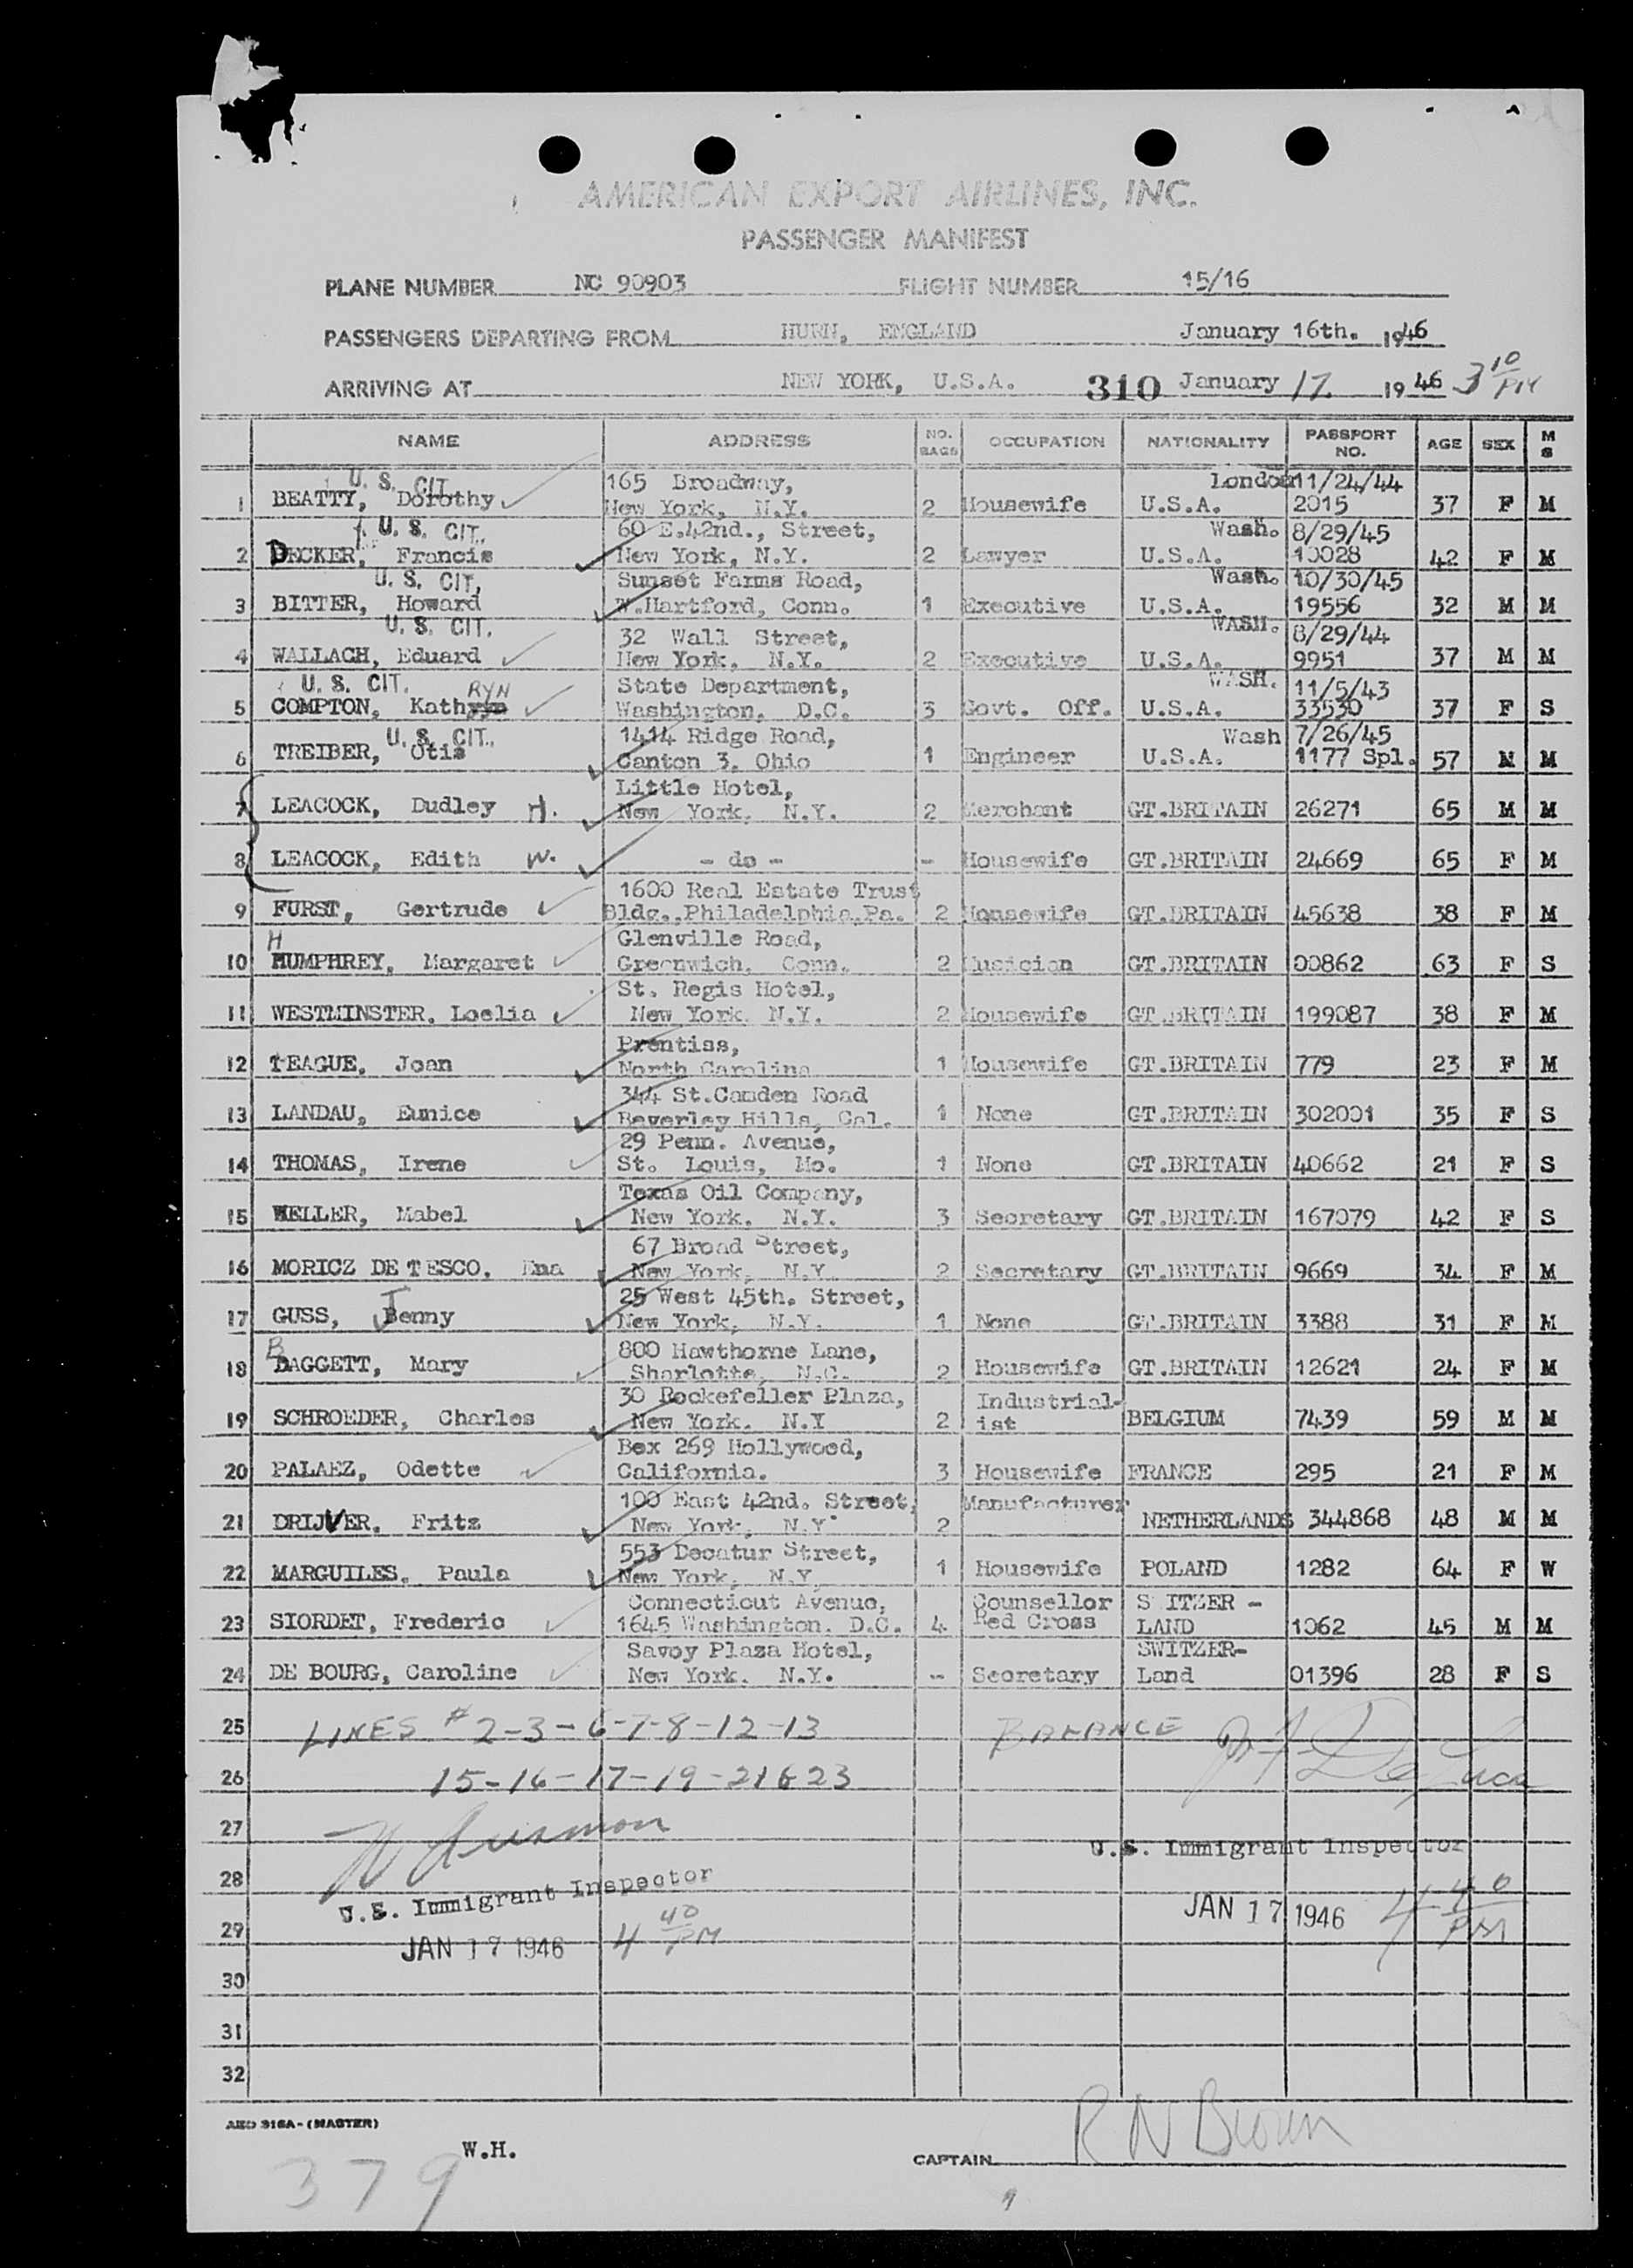 AMERICAN EXPORT AIRLINES, INC.
PASSENGER MANIFEST
PLANE NUMBER NC 90903 FLIGHT NUMBER 15/16
PASSENGERS DEPARTING FROM HURN, ENGLAND January 16th. 1946
ARRIVING AT NEW YORK, U.S.A. 310 January 17. 1946 3 10 PM
NAME ADDRESS NO. BAGS OCCUPATION NATIONALITY PASSPORT NO. AGE SEX M S
U. S. CIT. 165 Broadway, London 11/24/44
1 BEATTY, Dorothy New York, N.Y. 2 Housewife U.S.A. 2015 37 F M
U. S. CIT. 60 E.42nd., Street, Wash. 8/29/45
2 DECKER, Francis New York, N.Y. 2 Lawyer U.S.A. 10028 42 F M
U. S. CIT. Sunset Farms Road, Wash. 10/30/45
3 BITTER, Howard W.Hartford, Conn. 1 Executive U.S.A. 19556 32 M M
U. S. CIT. 32 Wall Street, WASH. 8/29/44
4 WALLACH, Eduard New York, N.Y. 2 Executive U.S.A. 9951 37 M M
U. S. CIT. RYN State Department, WASH. 11/5/43
5 COMPTON, Kath Washington, D.C. 3 Govt. Off. U.S.A. 33530 37 F S
U. S. CIT. 1414 Ridge Road, Wash 7/26/45
6 TREIBER, Otis Canton 3, Ohio 1 Engineer U.S.A. 1177 Spl. 57 M M
Little Hotel,
7 LEACOCK, Dudley H. New York, N.Y. 2 Merchant GT.BRITAIN 26271 65 M M
8 LEACOCK, Edith W. - do - - Housewife GT.BRITAIN 24669 65 F M
1600 Real Estate Trust
9 FURST, Gertrude Bldg.,Philadelphia,Pa. 2 Housewife GT.BRITAIN 45638 38 F M
Glenville Road,
10 HUMPHREY, Margaret Greenwich, Conn. 2 Musician GT.BRITAIN 00862 63 F S
St. Regis Hotel,
11 WESTMINSTER. Loelia New York. N.Y. 2 Housewife GT.BRITAIN 199087 38 F M
Prentiss,
12 TEAGUE, Joan North Carolina 1 Housewife GT.BRITAIN 779 23 F M
344 St.Camden Road
13 LANDAU, Eunice Beverley Hills, Cal. 1 None GT.BRITAIN 302001 35 F S
29 Penn. Avenue,
14 THOMAS, Irene St. Louis, Mo. 1 None GT.BRITAIN 40662 21 F S
Texas Oil Company,
15 WELLER, Mabel New York. N.Y. 3 Secretary GT.BRITAIN 167079 42 F S
67 Broad Street,
16 MORICZ DE TESCO. Ena New York. N.Y 2 Secretary GT.BRITAIN 9669 34 F M
25 West 45th. Street,
17 GUSS, Jenny New York, N.Y. 1 None GT.BRITAIN 3388 31 F M
800 Hawthorne Lane,
18 BAGGETT, Mary Sharlotte, N.C. 2 Housewife GT.BRITAIN 12621 24 F M
30 Rockefeller Plaza, Industrial-
19 SCHROEDER, Charles New York. N.Y 2 ist BELGIUM 7439 59 M M
Box 269 Hollywood,
20 PALAEZ, Odette California. 3 Housewife FRANCE 295 21 F M
100 East 42nd. Street, Manufacturer
21 DRIJVER. Fritz New York, N.Y. 2 NETHERLANDS 344868 48 M M
553 Decatur Street,
22 MARGUILES. Paula New York, N.Y 1 Housewife POLAND 1282 64 F W
Connecticut Avenue, Counsellor S ITZER -
23 SIORDET, Frederic 1645 Washington. D.C. 4 Red Cross LAND 1062 45 M M
Savoy Plaza Hotel, SWITZER-
24 DE BOURG, Caroline New York. N.Y. -- Secretary Land 01396 28 F S
25 LINES # 2-3-6-7-8-12-13 BALANCE
26 15-16-17-19-21&23
27
U.S. Immigrant Inspector
28
U.S. Immigrant Inspector JAN 17 1946 4 40 PM
29 JAN 17 1946 4 40 PM
30
31
32
AEO 316A-(MASTER)
W.H.
CAPTAIN R N Brown
379